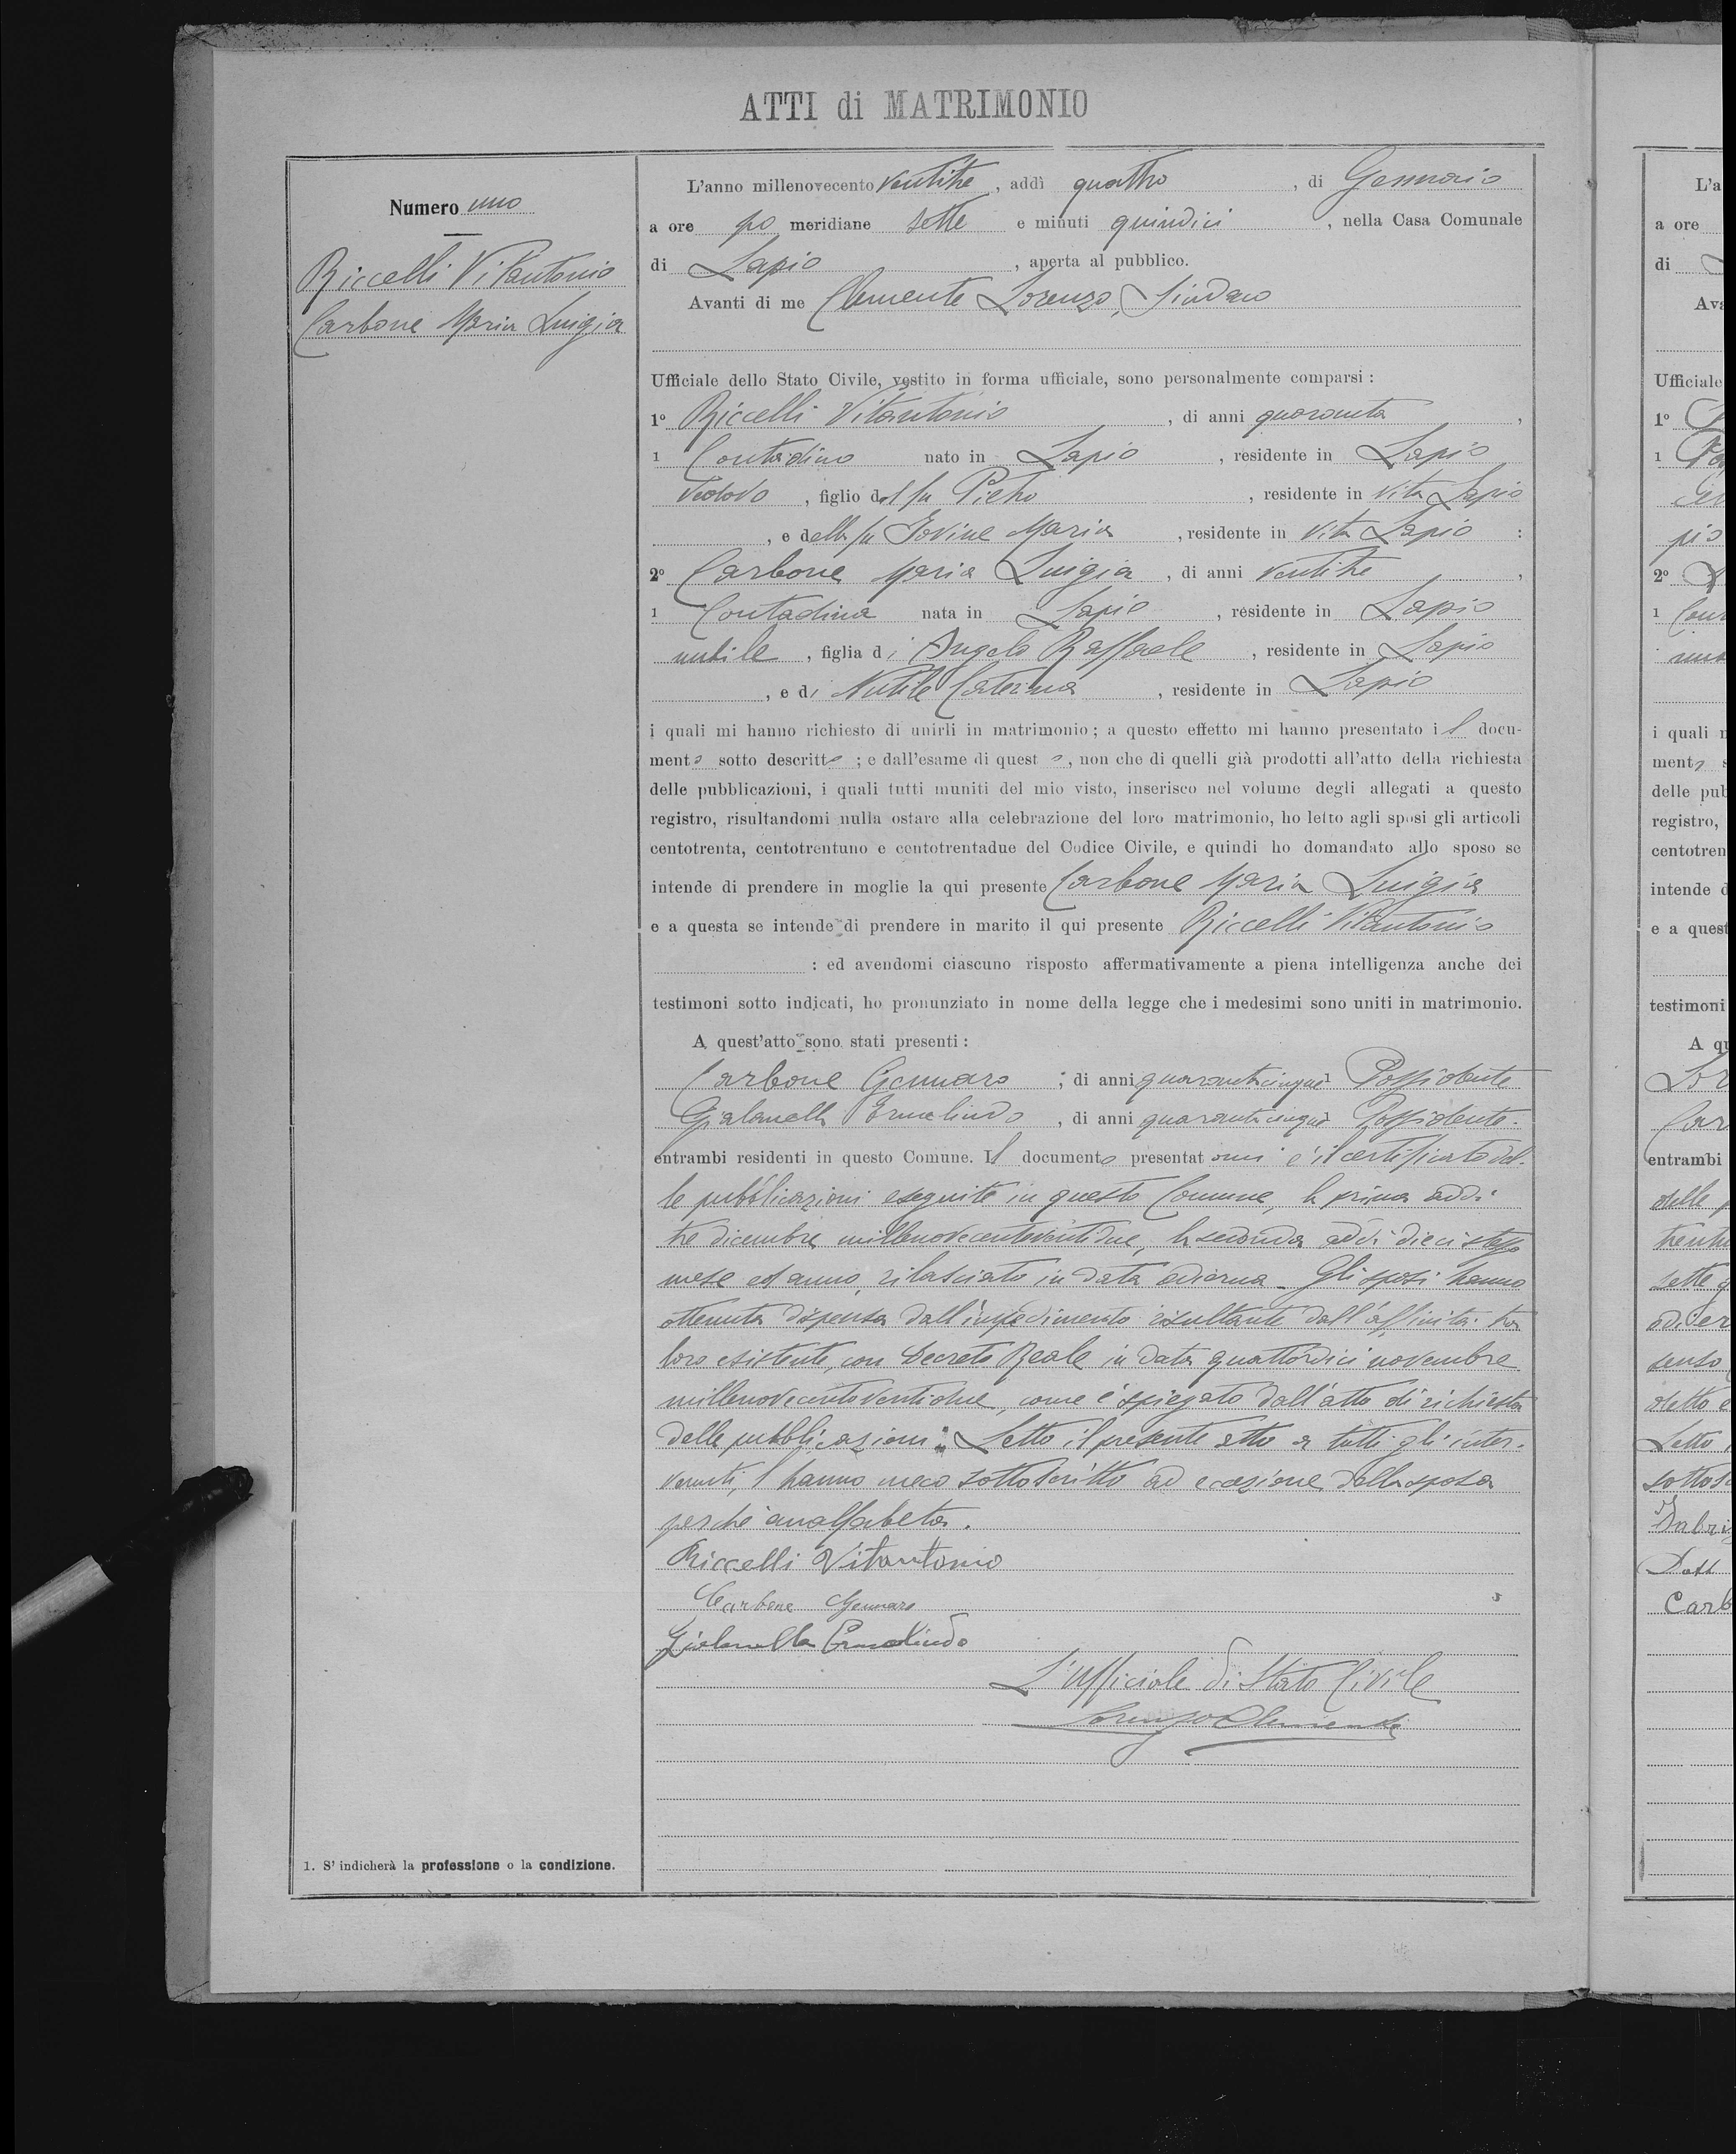 ATTI di MATRIMONIO
Numero uno
Riccelli Vitantonio
Carbone Maria Luigia
L'anno millenovecento ventitre, addì quattro, di Gennaio
a ore po meridiane sette e minuti quindici, nella Casa Comunale
di Lapio, aperta al pubblico.
Avanti di me Clemente Lorenzo, Sindaco
Ufficiale dello Stato Civile, vestito in forma ufficiale, sono personalmente comparsi:
1º Riccelli Vitantonio, di anni quaranta,
1 Contadino nato in Lapio, residente in Lapio
vedovo, figlio del fu Pietro, residente in vita Lapio
, e della fu Iovine Maria, residente in vita Lapio:
2º Carbone Maria Luigia, di anni ventitre,
1 Contadina nata in Lapio, residente in Lapio
nubile, figlia di Angelo Raffaele, residente in Lapio
, e di Nutile Caterina, residente in Lapio
i quali mi hanno richiesto di unirli in matrimonio; a questo effetto mi hanno presentato il docu-
mento sotto descritto; e dall'esame di questo, non che di quelli già prodotti all'atto della richiesta
delle pubblicazioni, i quali tutti muniti del mio visto, inserisco nel volume degli allegati a questo
registro, risultandomi nulla ostare alla celebrazione del loro matrimonio, ho letto agli sposi gli articoli
centotrenta, centotrentuno e centotrentadue del Codice Civile, e quindi ho domandato allo sposo se
intende di prendere in moglie la qui presente Carbone Maria Luigia
e a questa se intende di prendere in marito il qui presente Riccelli Vitantonio
: ed avendomi ciascuno risposto affermativamente a piena intelligenza anche dei
testimoni sotto indicati, ho pronunziato in nome della legge che i medesimi sono uniti in matrimonio.
A quest'atto sono stati presenti:
Carbone Gennaro; di anni quarantacinque Possidente
Gialanella Ermelindo, di anni quarantacinque Possidente.
entrambi residenti in questo Comune. Il documento presentatomi è il certificato del-
le pubblicazioni eseguite in questo Comune, la prima addì
tre dicembre millenovecentoventidue, la seconda addì dieci stesso
mese ed anno, rilasciato in data odierna. Gli sposi hanno
ottenuta dispensa dall'impedimento risultante dall'affinità tra
loro esistente, con Decreto Reale in data quattordici novembre
millenovecentoventidue, come è spiegato dall'atto di richiesta
delle pubblicazioni. Letto il presente atto a tutti gli inter-
venuti, l'hanno meco sottoscritto ad eccezione della sposa
perché analfabeta.
Riccelli Vitantonio
Carbone Gennaro
Gialanella Ermelindo
L'Ufficiale di Stato Civile
Lorenzo Clemente
1. S'indicherà la professione o la condizione.
L'a
a ore
di
Ava
Ufficiale
1º
1
2º
1
i quali
ment
delle pub
registro,
centotren
intende
e a quest
testimoni
A qu
entrambi
delle
sette
Letto
Carb